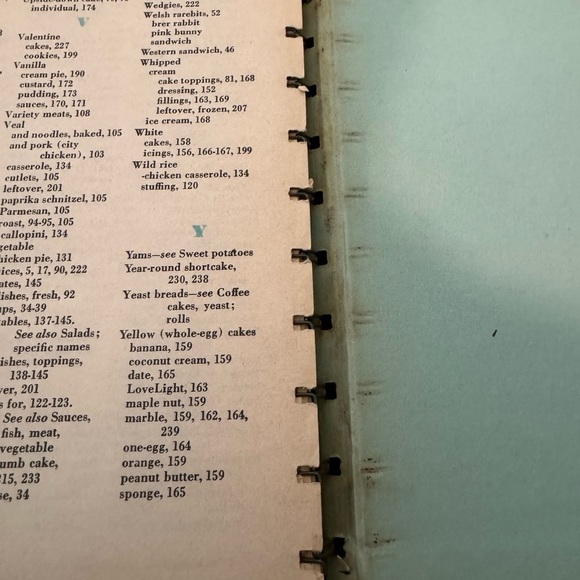 individual, 174
V
Valentine
cakes, 227
cookies, 199
Vanilla
cream pie, 190
custard, 172
pudding, 173
sauces, 170, 171
Variety meats, 108
Veal
and noodles, baked, 105
and pork (city
chicken), 103
casserole, 134
cutlets, 105
leftover, 201
paprika schnitzel, 105
Parmesan, 105
roast, 94-95, 105
callopini, 134
getable
hicken pie, 131
uices, 5, 17, 90, 222
ates, 145
lishes, fresh, 92
ups, 34-39
tables, 137-145.
See also Salads;
specific names
ishes, toppings,
138-145
ver, 201
s for, 122-123.
See also Sauces,
fish, meat,
vegetable
umb cake,
215, 233
se, 34
Wedgies, 222
Welsh rarebits, 52
brer rabbit
pink bunny
sandwich
Western sandwich, 46
Whipped
cream
cake toppings, 81, 168
dressing, 152
fillings, 163, 169
leftover, frozen, 207
ice cream, 168
White
cakes, 158
icings, 156, 166-167, 199
Wild rice
-chicken casserole, 134
stuffing, 120
Y
Yams—see Sweet potatoes
Year-round shortcake,
230, 238
Yeast breads—see Coffee
cakes, yeast;
rolls
Yellow (whole-egg) cakes
banana, 159
coconut cream, 159
date, 165
LoveLight, 163
maple nut, 159
marble, 159, 162, 164,
239
one-egg, 164
orange, 159
peanut butter, 159
sponge, 165